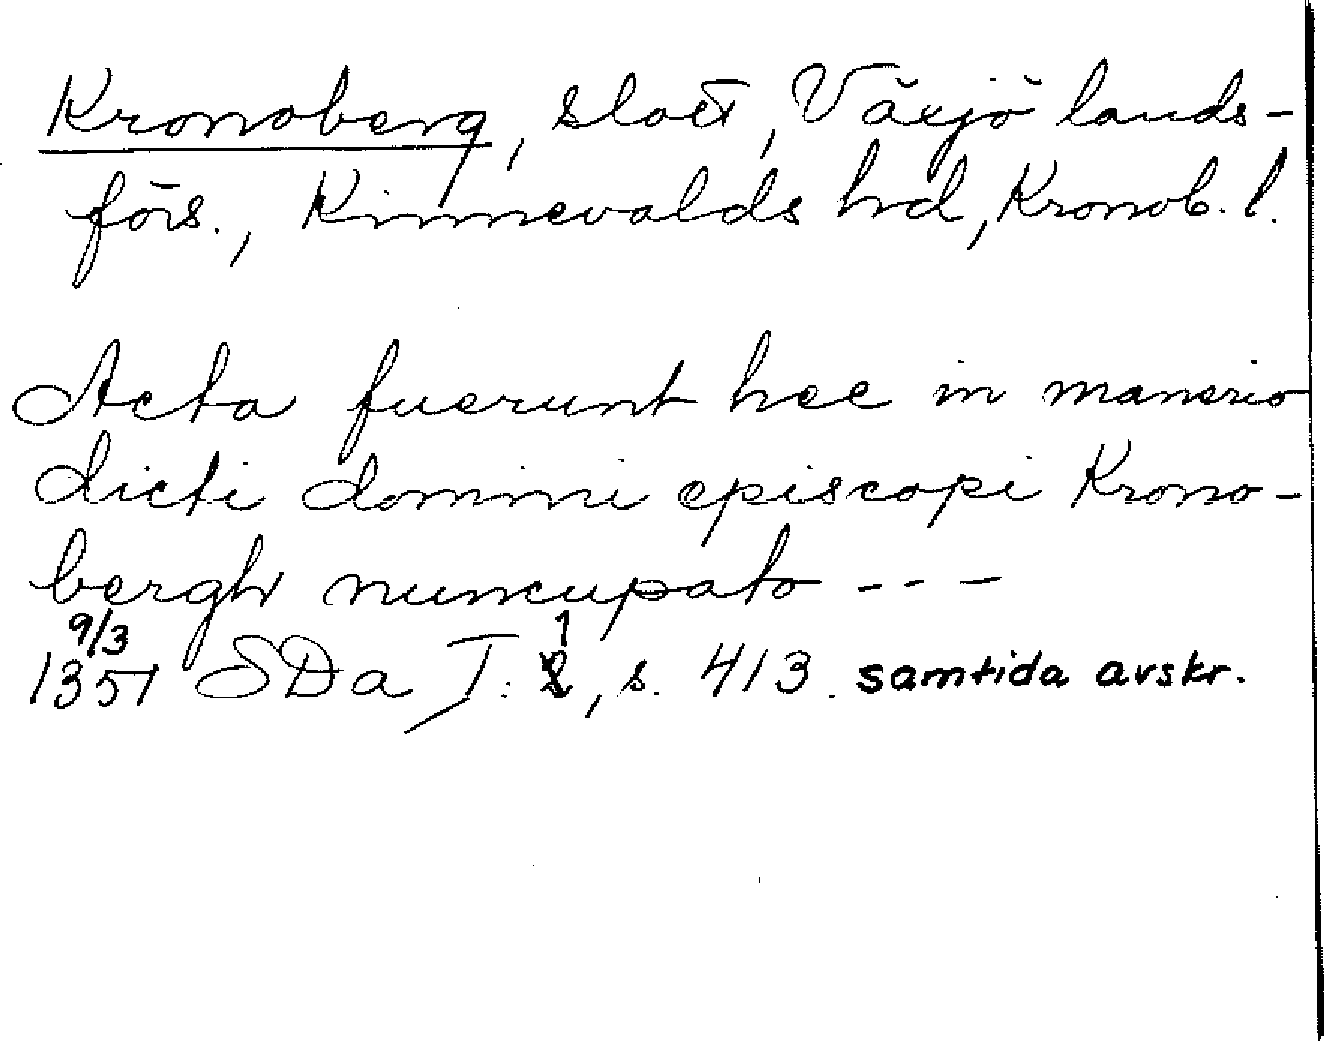 Kronoberg, slott, Växjö lands-
förs., Kinnevalds hd, Kronob. l.
Acta fuerunt hec in manerio
dicti domini episcopi Krono-
bergh nuncupato ---
9/3 1
1351 SDa I: 2, s. 413. samtida avskr.